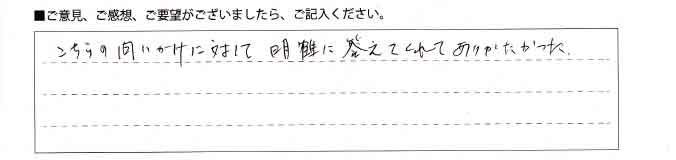 ■ご意見、ご感想、ご要望がございましたら、ご記入ください。
こちらの問いかけに対して 明確に答えてくれてありがたかった.